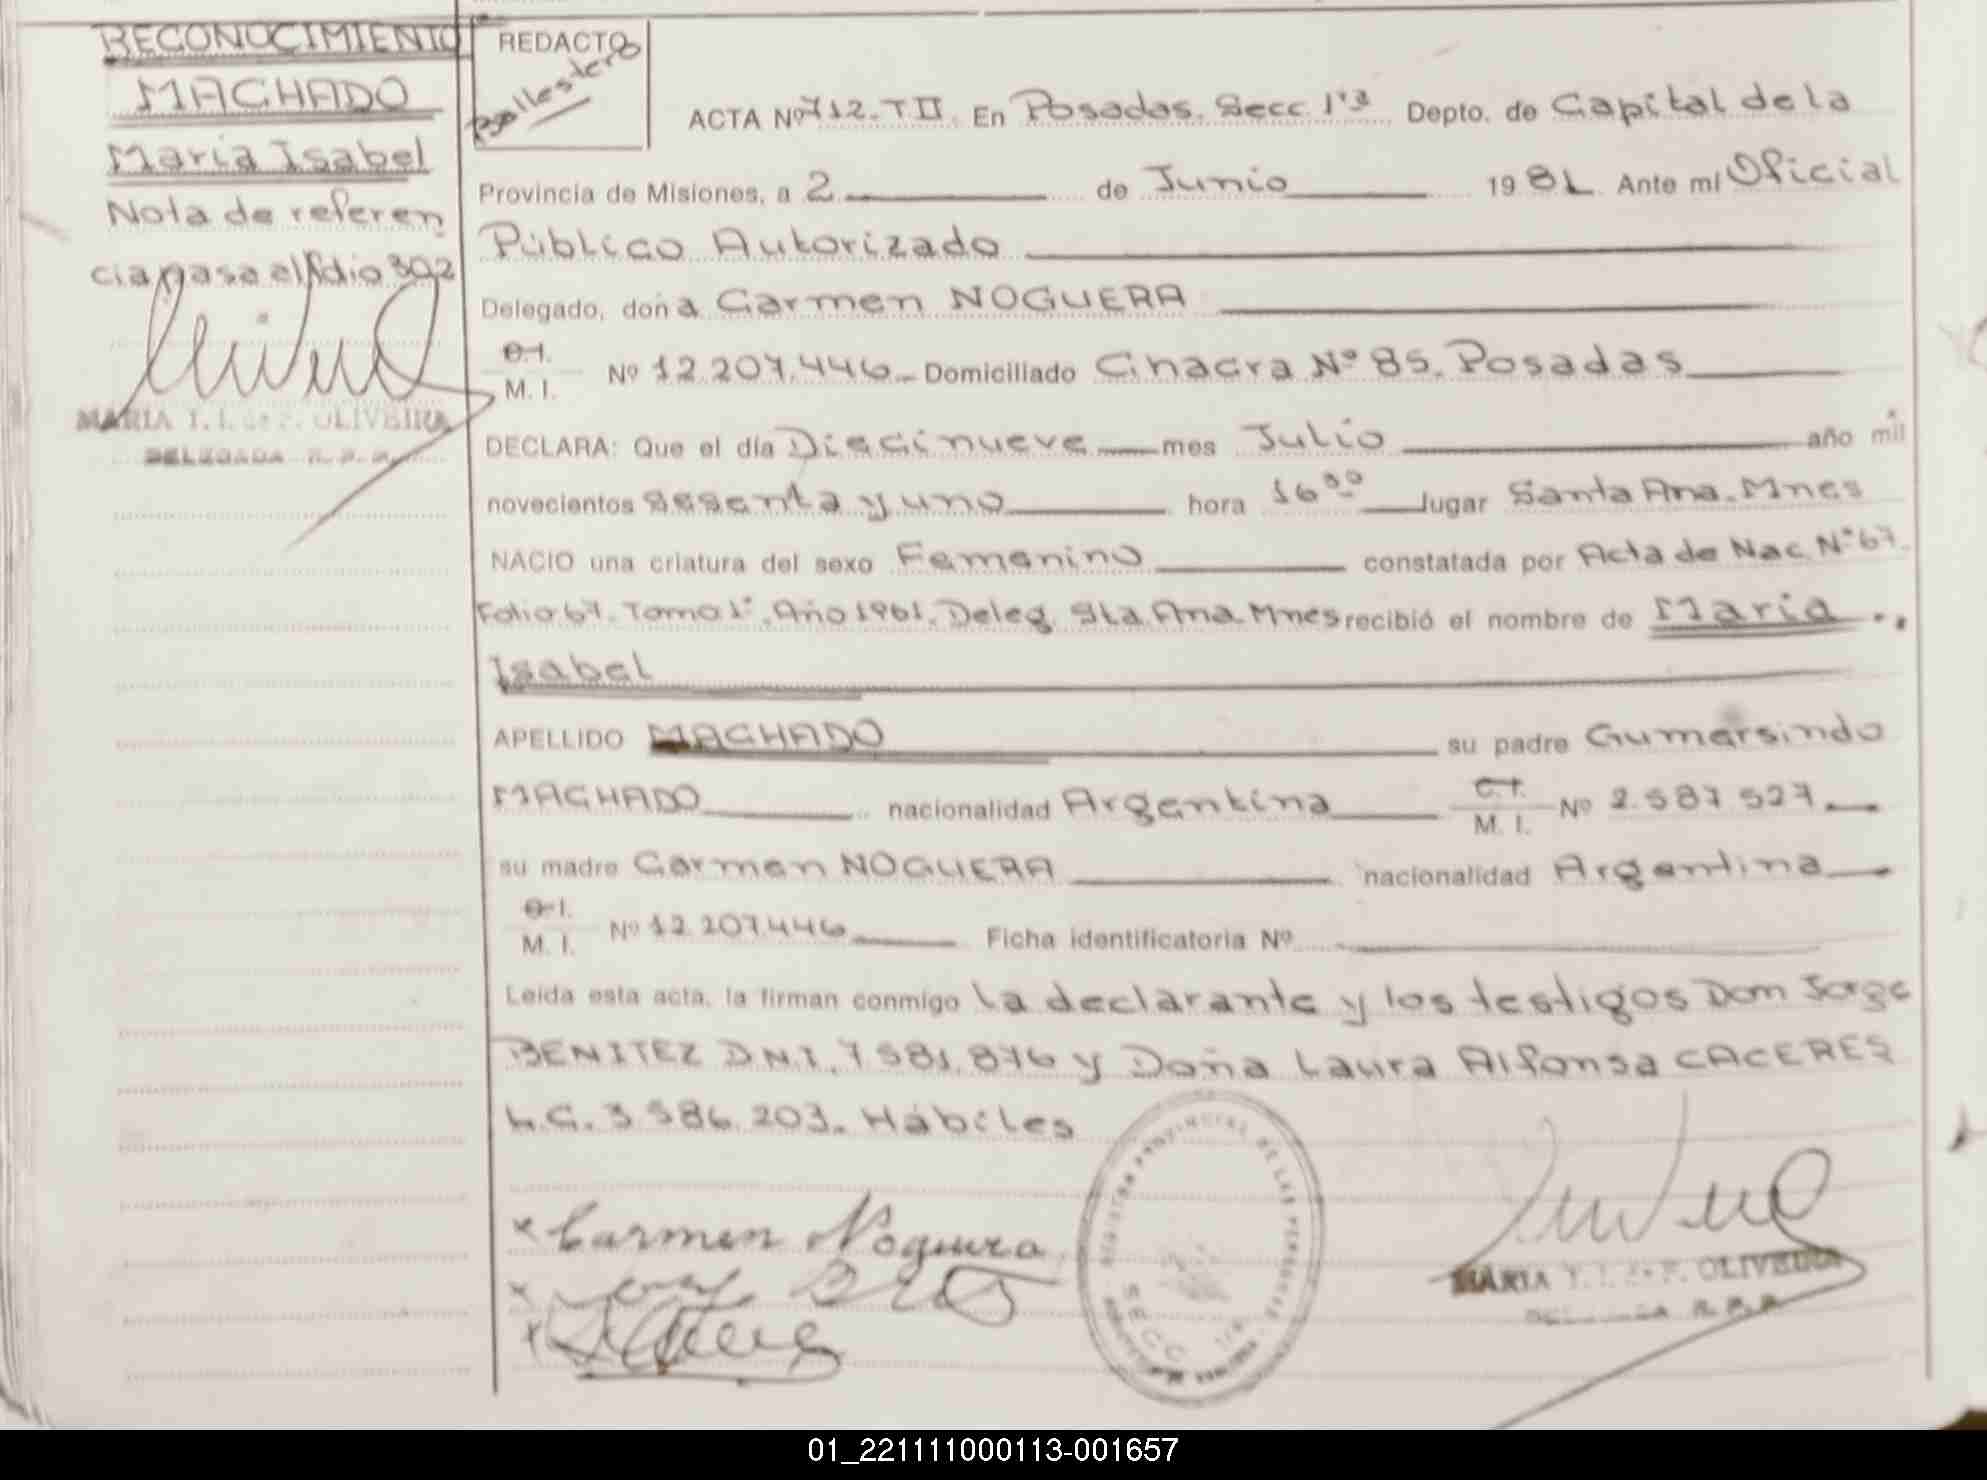 RECONOCIMIENTO
MACHADO
María Isabel
Nota de referen
cia pasa al folio 302
MARIA T. I. de P. OLIVEIRA
DELEGADA R. P. P.
REDACTO
Ballestero
ACTA Nº 712. T II. En Posadas. Secc. 1ra Depto. de Capital de la
Provincia de Misiones, a 2 de Junio 1981. Ante mí Oficial
Público Autorizado
Delegado, doña Carmen NOGUERA
C.I.
M. I. Nº 12.207.446 Domiciliado Chacra Nº 85. Posadas
DECLARA: Que el día Diecinueve mes Julio año mil
novecientos sesenta y uno hora 16 30 lugar Santa Ana. Mnes
NACIO una criatura del sexo Femenino constatada por Acta de Nac. Nº 67.
Folio 67. Tomo 1º. Año 1961. Deleg. Sta. Ana Mnes recibió el nombre de María
Isabel
APELLIDO MACHADO su padre Gumersindo
MACHADO nacionalidad Argentina C.I.
M. I. Nº 2.587.527
su madre Carmen NOGUERA nacionalidad Argentina
C.I.
M. I. Nº 12.207.446 Ficha identificatoria Nº
Leída esta acta, la firman conmigo La declarante y los testigos Don Jorge
BENITEZ D.N.I. 7.581.876 y Doña Laura Alfonsa CACERES
L.C. 3.586.203. Hábiles
x Carmen Noguera
REGISTRO PROVINCIAL DE LAS PERSONAS
SECC. 1ra
MARIA T. I. de P. OLIVEIRA
DELEGADA R. P. P.
01_221111000113-001657